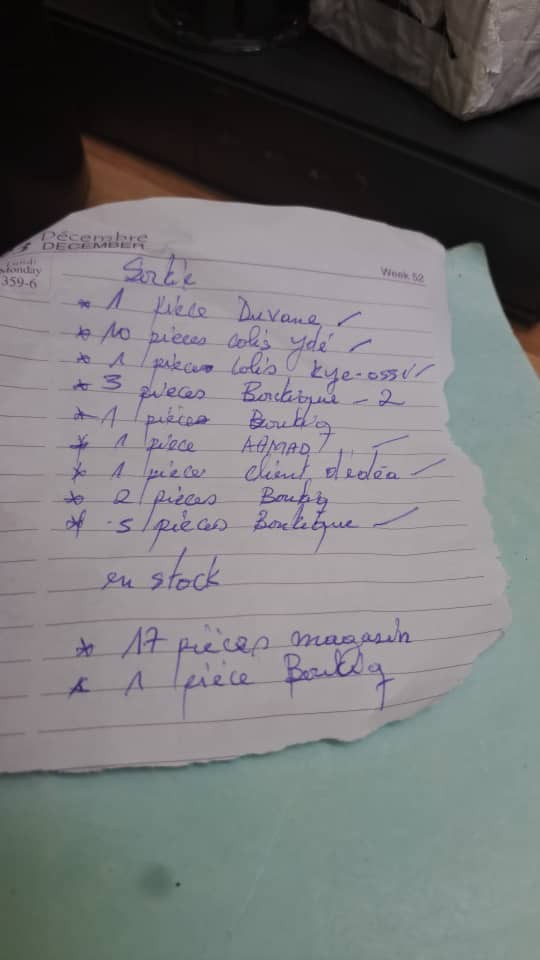 Décembre
DECEMBER
Lundi
Monday
359-6
Week 52
Sortie
* 1 pièce Duvane ✓
* 10 pièces colis ydé ✓
* 1 pièce colis kye-ossi ✓
* 3 pièces Boutique - 2
* 1 pièces Boutiq
* 1 pièce AHMAD ✓
* 1 pièce client d'édéa ✓
* 2 pièces Boutiq
* 5 pièces Boutique ✓
en stock
* 17 pièces magasin
* 1 pièce Boutiq